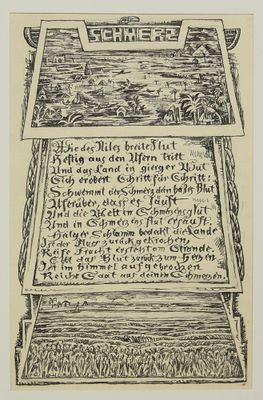 SCHMERZ
Wie des Niles breite Flut
Heftig aus den Ufern tritt
Und das Land in gierger Wut
Sich erobert Schritt für Schritt:
Schwemmt der Schmerz dein Blut
Uferüber, dass es läuft
Und die Welt in Schmerzensglut
Und in Schmerzensflut ersäuft.
Schlamm bedeckt die Lande
Ist der Fluss zurückgekrochen,
Reife Frucht ersteht am Strande.
das Blut zurück zum Herzen
Ist im Himmel aufgebrochen
Reiche Saat aus deinen Schmerzen.